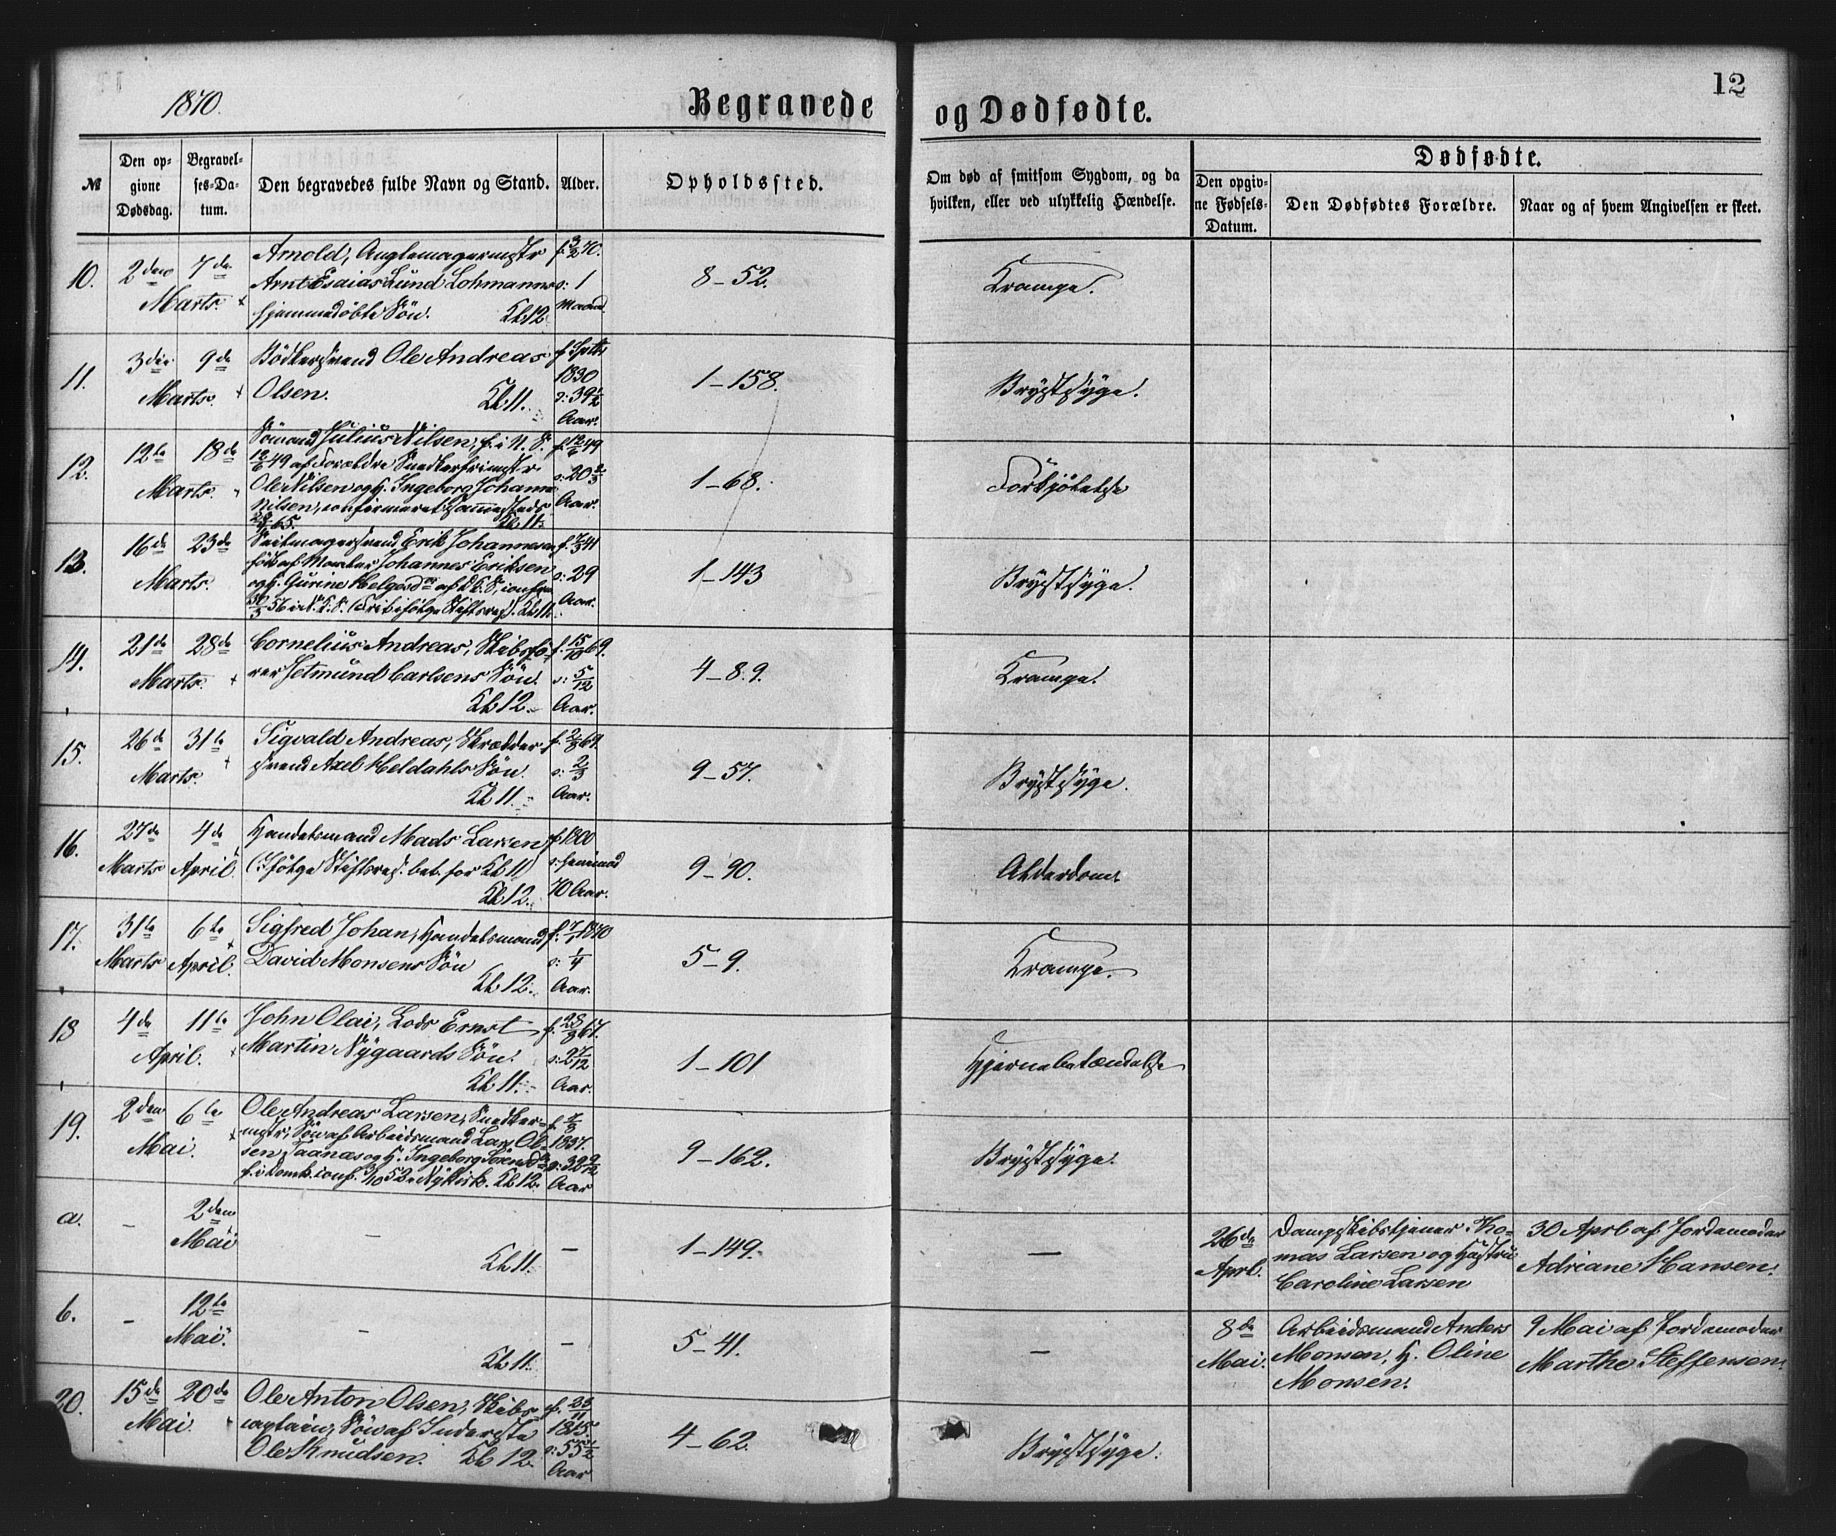 1870.
Begravede
og Dødfødte.
12
№
Den op-
givne
Dødsdag.
Begravel-
ses-Da-
tum.
Den begravedes fulde Navn og Stand.
Alder.
Opholdssted.
Om død af smitsom Sygdom, og da
hvilken, eller ved ulykkelig Hændelse.
Dødfødte.
Den opgiv-
ne Fødsels-
Datum.
Den Dødfødtes Forældre.
Naar og af hvem Angivelsen er skeet.
10.
2den
Marts.
7de
Arnold,
Arnt Esaias Lund Lohmanns
hjemmedøbte Søn. Kb 12.
f. 3/2 70.
o: 1
Maaned
8-52.
Krampe.
11.
3die
Marts.
9de
Bødkersvend Ole Andreas
Olsen. Kb: 11.
f. Sptbr
1830
o: 39 1/2
Aar.
1-158.
Brystsyge.
12.
12te
Marts.
18de
Sömand Julius Nilsen, f. i N. S.
12/6 49 af Forældre Snedkermstr
Ole Nilsen og H. Ingeborg Johanne
Nilsen, confirmeret sammesteds
65. Kb 11.
f. 12/6 49
o: 20 2/3
Aar.
1-68.
Forkjølelse
13.
16de
Marts.
23de
Seilmagersvend Erik Johannesen
født af Johannes Eriksen
og h. Gurine Helgesd
56 Kb 11.
41
o: 29
Aar.
1-143
Brystsyge.
14.
21de
Marts.
28de
Cornelius Andreas, Skibsfö-
rer Jetmund Carlsens Søn.
Kb 12.
f. 15/10 69.
o: 5/12
Aar.
4-89.
Krampe.
15.
26de
Marts.
31te
Sigvald Andreas, Skrædder
svend Axel Heldahls Søn.
Kb 11.
f. 2/8 69.
o: 2/3
Aar.
9-57.
Brystsyge.
16.
27de
Marts
4de
April.
Handelsmand Mads Larsen
(Ifølge Stiftsresl. bet. for Kb 11)
Kb 12.
f. 1800
o: henimod
70 Aar.
9-90.
Alderdom.
17.
31te
Marts
6te
April.
Sigfred Johan, Handelsmand
David Monsens Søn
Kb 12.
f. 7/1 1870
o: 1/4
Aar.
5-9.
Krampe.
18
4de
April.
11te
John Olai, Lods Ernst
Martin Nygaards Søn.
Kb 11.
f. 28/8 67.
o: 2 7/12
Aar.
1-101
Hjernebetændelse
19.
2den
Mai.
6te
Ole Andreas Larsen, Snedker-
mstr, Søn af Arbeidsmand Lars Ol-
sen og H. Ingeborg
f. i Domk. conf. 3/10 52 i Nykirk. Kb 12.
1837.
o: 32
Aar
9-162.
Brystsyge.
a.
-
2den
Mai
-
Kb 11.
-
1-149.
-
26de
Aprl.
Dampskibstjener Tho-
mas Larsen og Hustru
Caroline Larsen
30 Aprl af Jordemoder
Adriane Hansen.
b.
-
12te
Mai.
-
Kb 11.
-
5-41.
-
8de
Mai.
Arbeidsmand Anders
Monsen, H. Oline
Monsen.
9 Mai af Jordemoder
Marthe Steffensen.
20.
15de
Mai
20de
Ole Anton Olsen, Skibs
captain, Søn af Inderste
Ole Knudsen. Kb 12.
f. 23/11
1815.
o: 55 1/2
Aar
4-62.
Brystsyge.